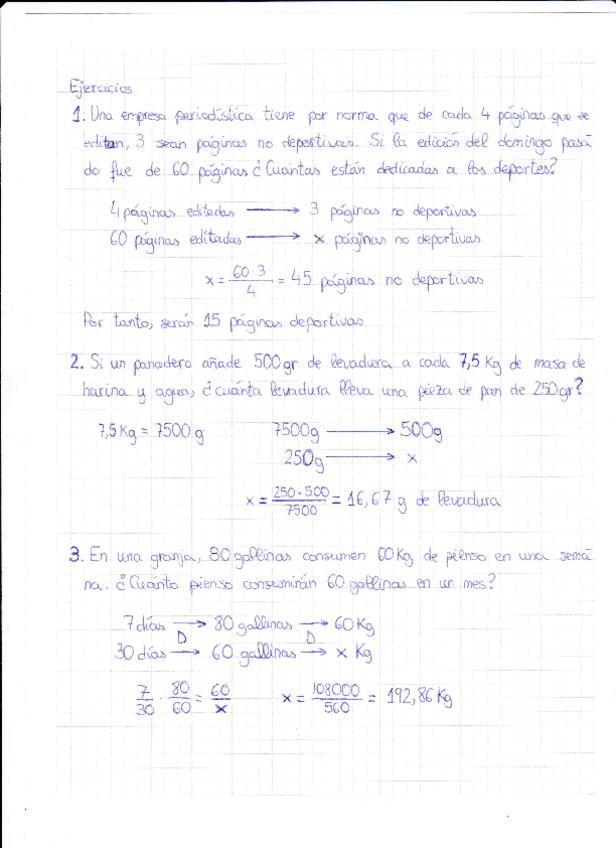 Ejercicios
1. Una empresa periodística tiene por norma que de cada 4 páginas que se
editan, 3 sean páginas no deportivas. Si la edición del domingo pasa
do fue de 60 páginas ¿Cuántas están dedicadas a los deportes?
4 páginas editadas → 3 páginas no deportivas
60 páginas editadas → x páginas no deportivas
x = 60·3 / 4 = 45 páginas no deportivas
Por tanto, serán 15 páginas deportivas
2. Si un panadero añade 500gr de levadura a cada 7,5 Kg de masa de
harina y agua, ¿cuánta levadura lleva una pieza de pan de 250gr?
7,5 Kg = 7500 g 7500g → 500g
250g → x
x = 250·500 / 7500 = 16,67 g de levadura
3. En una granja, 80 gallinas consumen 60Kg de pienso en una sema
na. ¿Cuánto pienso consumirán 60 gallinas en un mes?
7 días → 80 gallinas → 60 Kg
D D
30 días → 60 gallinas → x Kg
7/30 · 80/60 = 60/x x = 108000/560 = 192,86 Kg